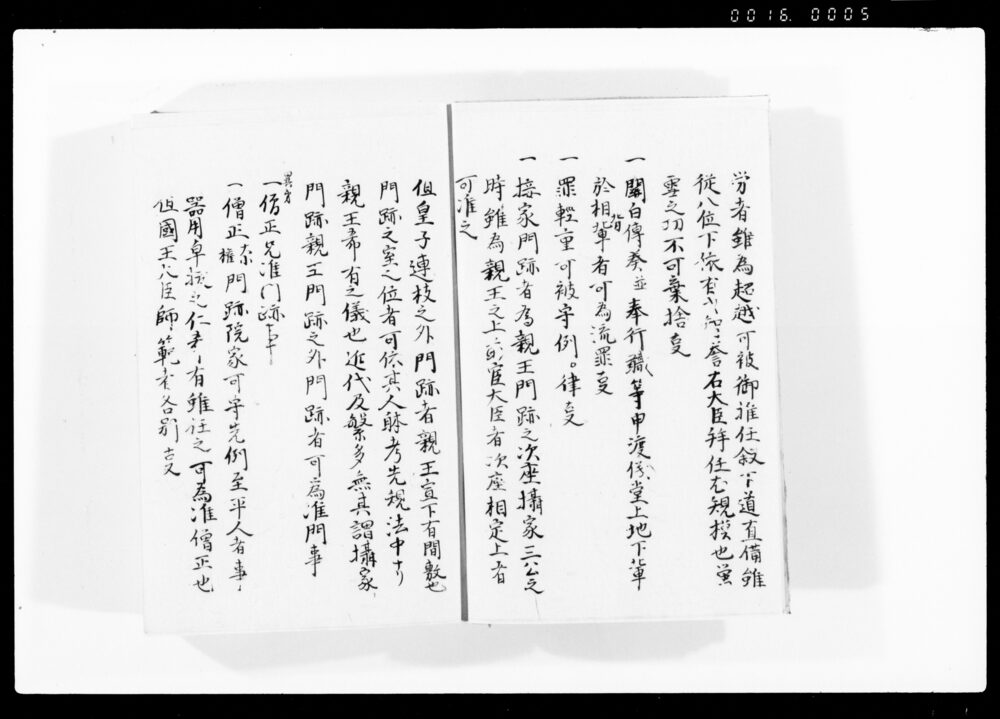 0016. 0005
労者雖為超越可被御推任叙下道真備雖
従八位下依有才智誉右大臣拝任尤規摸也蛍
雪之功不可棄捨事
一関白傳奏並奉行職等申渡儀堂上地下輩
於相背輩者可為流罪事
一罪軽重可被守例。律事
一摂家門跡者為親王門跡之次座摂家三公之
時雖為親王之上前官大臣者次座相定上者
可准之
但皇子連枝之外門跡者親王宣下有間敷也
門跡之室之位者可依其人躰考先規法中ノ
親王希有之儀也近代及繁多無其謂摂家
門跡親王門跡之外門跡者可為准門事
異本
一僧正允准門跡事
一僧正大権門跡院家可守先例至平人者事
器用卓抜之仁希有雖任之可為准僧正也
但國王大臣師範者各別事